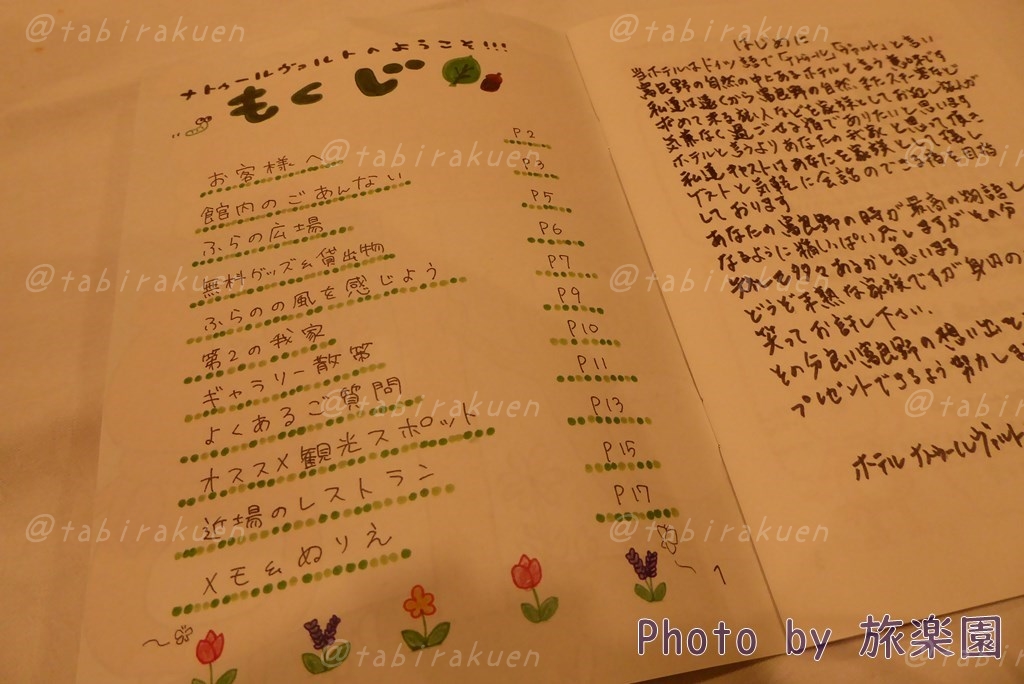 ナトゥールヴァルトへようこそ!!!
もくじ
お客様へ P2
館内のごあんない P3
ふらの広場 P5
無料グッズ&貸出物 P6
ふらのの風を感じよう P7
第2の我家 P9
ギャラリー散策 P10
よくあるご質問 P11
オススメ観光スポット P13
近場のレストラン P15
メモ&ぬりえ P17
1
はじめに
当ホテルはドイツ語で「ナトゥール」「ヴァルト」と言い
富良野の自然の中にあるホテルと言う意味です
私達は遠くから富良野の自然、また
求めて来る旅人などを家族としてお迎えし
気兼なく過ごせる宿でありたいと思います
ホテルと言うよりあなたの我家と思って頂き
私達キャストはあなたを家族として
ゲストと気軽に会話のできる宿を目指
しております
あなたの富良野の時が最高の物語
なるように精いっぱい尽しますが
多々あるかと思います
どうぞ未熟な家族ですが身内の
笑ってお許し下さい。
その分良い富良野の想い出を
プレゼントできるよう努力しま
ホテルナトゥールヴァルト
@tabirakuen
Photo by 旅楽園